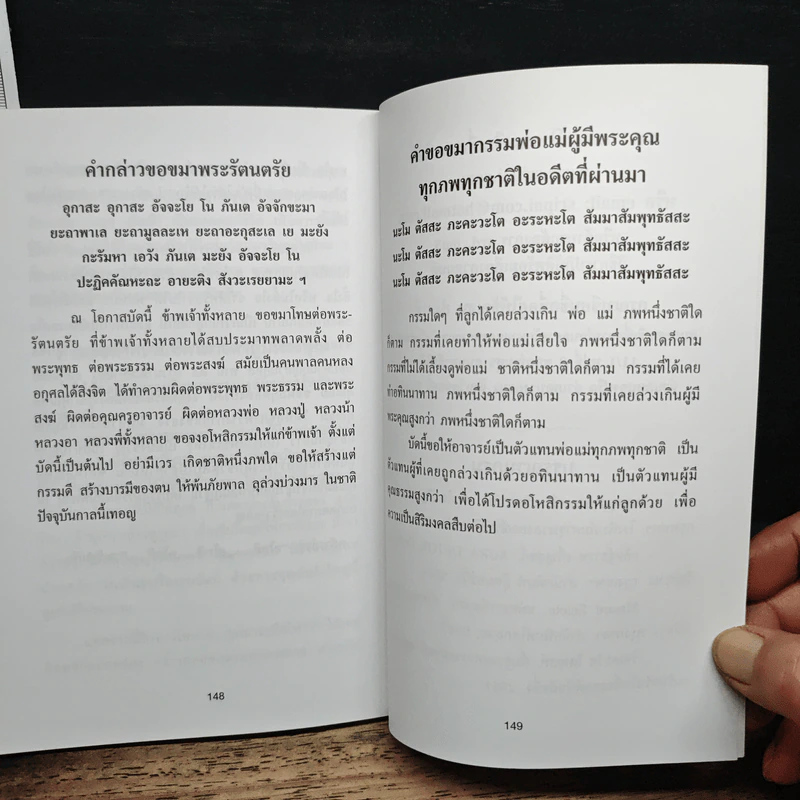 คำกล่าวขอขมาพระรัตนตรัย
อุกาสะ อุกาสะ อัจจะโย โน ภันเต อัจจักขะมา
ยะถาพาเล ยะถามูลละเห ยะถาอะกุสะเล เย มะยัง
กะรัมหา เอวัง ภันเต มะยัง อัจจะโย โน
ปะฏิคคัณหะถะ อายะติง สังวะเรยยามะ ฯ
ณ โอกาสบัดนี้ ข้าพเจ้าทั้งหลาย ขอขมาโทษต่อพระ-
รัตนตรัย ที่ข้าพเจ้าทั้งหลายได้สบประมาทพลาดพลั้ง ต่อ
พระพุทธ ต่อพระธรรม ต่อพระสงฆ์ สมัยเป็นคนพาลคนหลง
อกุศลได้สิงจิต ได้ทำความผิดต่อพระพุทธ พระธรรม และพระ
สงฆ์ ผิดต่อคุณครูอาจารย์ ผิดต่อหลวงพ่อ หลวงปู่ หลวงน้า
หลวงอา หลวงพี่ทั้งหลาย ขอจงอโหสิกรรมให้แก่ข้าพเจ้า ตั้งแต่
บัดนี้เป็นต้นไป อย่ามีเวร เกิดชาติหนึ่งภพใด ขอให้สร้างแต่
กรรมดี สร้างบารมีของตน ให้พ้นภัยพาล ลุล่วงบ่วงมาร ในชาติ
ปัจจุบันกาลนี้เทอญ
148
คำขอขมากรรมพ่อแม่ผู้มีพระคุณ
ทุกภพทุกชาติในอดีตที่ผ่านมา
นะโม ตัสสะ ภะคะวะโต อะระหะโต สัมมาสัมพุทธัสสะ
นะโม ตัสสะ ภะคะวะโต อะระหะโต สัมมาสัมพุทธัสสะ
นะโม ตัสสะ ภะคะวะโต อะระหะโต สัมมาสัมพุทธัสสะ
กรรมใดๆ ที่ลูกได้เคยล่วงเกิน พ่อ แม่ ภพหนึ่งชาติใด
ก็ตาม กรรมที่เคยทำให้พ่อแม่เสียใจ ภพหนึ่งชาติใดก็ตาม
กรรมที่ไม่ได้เลี้ยงดูพ่อแม่ ชาติหนึ่งชาติใดก็ตาม กรรมที่ได้เคย
ทำอทินนาทาน ภพหนึ่งชาติใดก็ตาม กรรมที่เคยล่วงเกินผู้มี
พระคุณสูงกว่า ภพหนึ่งชาติใดก็ตาม
บัดนี้ขอให้อาจารย์เป็นตัวแทนพ่อแม่ทุกภพทุกชาติ เป็น
ตัวแทนผู้ที่เคยถูกล่วงเกินด้วยอทินนาทาน เป็นตัวแทนผู้มี
คุณธรรมสูงกว่า เพื่อได้โปรดอโหสิกรรมให้แก่ลูกด้วย เพื่อ
ความเป็นสิริมงคลสืบต่อไป
149